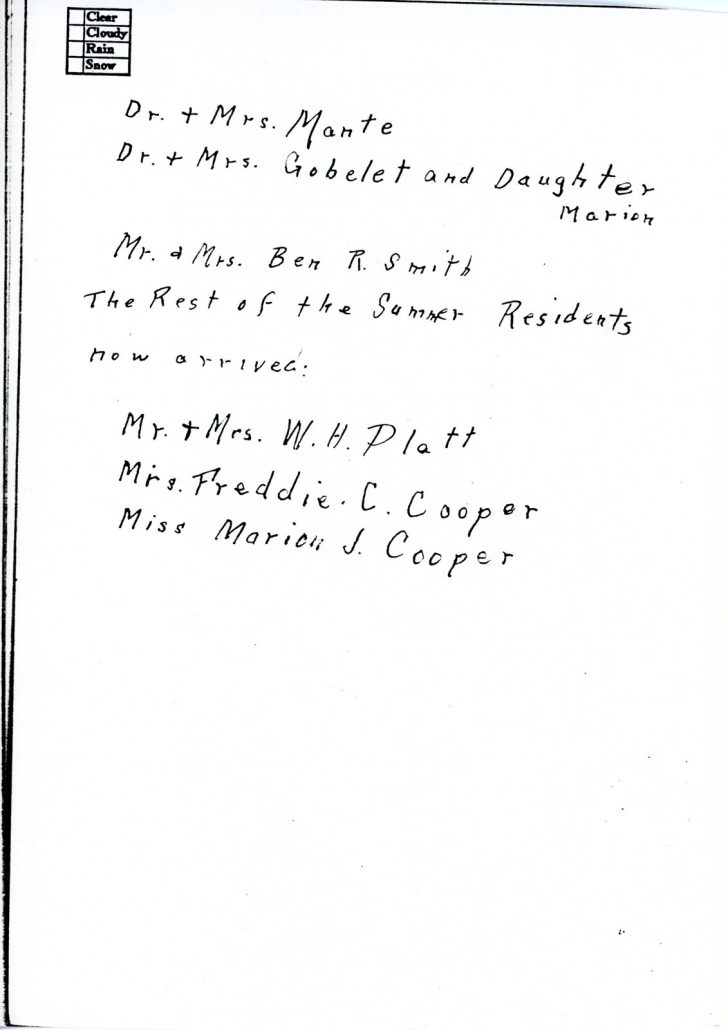 Clear
Cloudy
Rain
Snow
Dr. + Mrs. Mante
Dr. + Mrs. Gobelet and Daughter
Marion
Mr. & Mrs. Ben R. Smith
The Rest of the Summer Residents
now arrived:
Mr. + Mrs. W. H. Platt
Mrs. Freddie. C. Cooper
Miss Marion J. Cooper